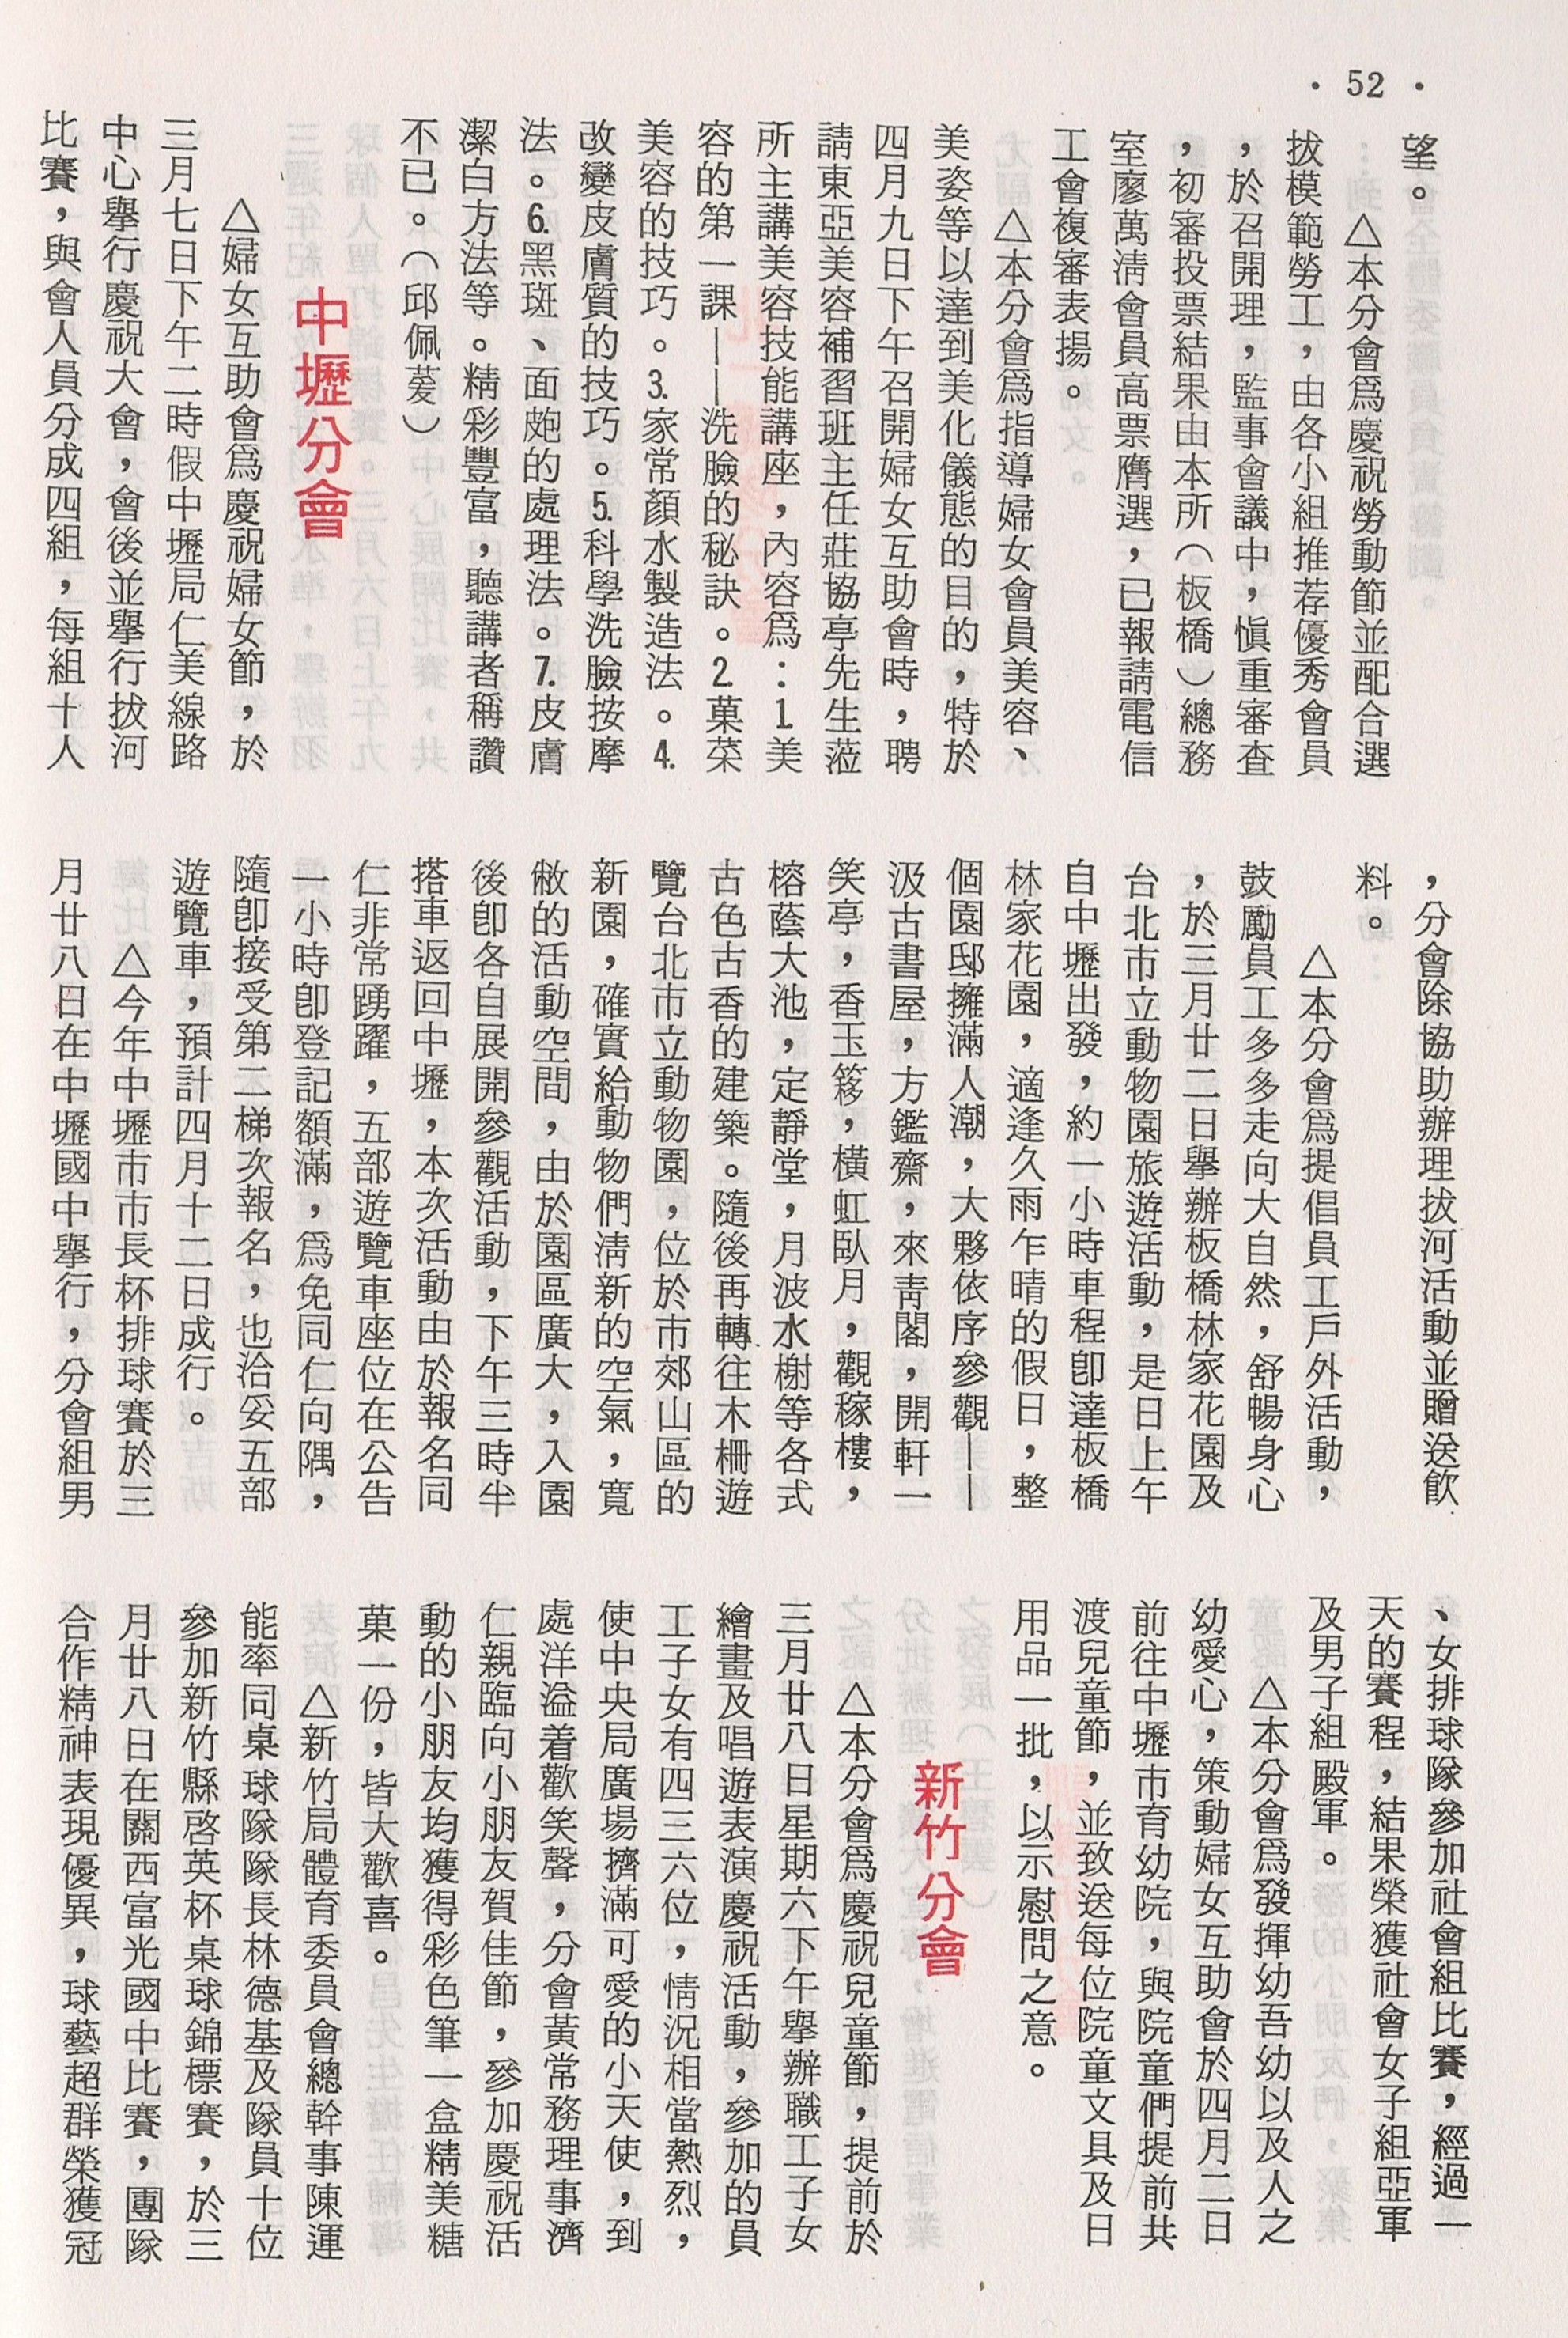 · 52 ·
望。
△本分會爲慶祝勞動節並配合選
拔模範勞工，由各小組推荐優秀會員
，於召開理，監事會議中，愼重審查
，初審投票結果由本所（板橋）總務
室廖萬淸會員高票膺選，已報請電信
工會複審表揚。
△本分會爲指導婦女會員美容、
美姿等以達到美化儀態的目的，特於
四月九日下午召開婦女互助會時，聘
請東亞美容補習班主任莊協亭先生蒞
所主講美容技能講座，內容爲：1.美
容的第一課——洗臉的秘訣。2.菓菜
美容的技巧。3.家常顏水製造法。4.
改變皮膚質的技巧。5.科學洗臉按摩
法。6.黑斑、面皰的處理法。7.皮膚
潔白方法等。精彩豐富，聽講者稱讚
不已。（邱佩薆）
中壢分會
△婦女互助會爲慶祝婦女節，於
三月七日下午二時假中壢局仁美線路
中心舉行慶祝大會，會後並舉行拔河
比賽，與會人員分成四組，每組十人
，分會除協助辦理拔河活動並贈送飮
料。
△本分會爲提倡員工戶外活動，
鼓勵員工多多走向大自然，舒暢身心
，於三月廿二日舉辦板橋林家花園及
台北市立動物園旅遊活動，是日上午
自中壢出發，約一小時車程卽達板橋
林家花園，適逢久雨乍晴的假日，整
個園邸擁滿人潮，大夥依序參觀——
汲古書屋，方鑑齋，來靑閣，開軒一
笑亭，香玉簃，橫虹臥月，觀稼樓，
榕蔭大池，定靜堂，月波水榭等各式
古色古香的建築。隨後再轉往木柵遊
覽台北市立動物園，位於市郊山區的
新園，確實給動物們淸新的空氣，寬
敝的活動空間，由於園區廣大，入園
後卽各自展開參觀活動，下午三時半
搭車返回中壢，本次活動由於報名同
仁非常踴躍，五部遊覽車座位在公告
一小時卽登記額滿，爲免同仁向隅，
隨卽接受第二梯次報名，也洽妥五部
遊覽車，預計四月十二日成行。
△今年中壢市市長杯排球賽於三
月廿八日在中壢國中舉行，分會組男
、女排球隊參加社會組比賽，經過一
天的賽程，結果榮獲社會女子組亞軍
及男子組殿軍。
△本分會爲發揮幼吾幼以及人之
幼愛心，策動婦女互助會於四月二日
前往中壢市育幼院，與院童們提前共
渡兒童節，並致送每位院童文具及日
用品一批，以示慰問之意。
新竹分會
△本分會爲慶祝兒童節，提前於
三月廿八日星期六下午舉辦職工子女
繪畫及唱遊表演慶祝活動，參加的員
工子女有四三六位，情況相當熱烈，
使中央局廣場擠滿可愛的小天使，到
處洋溢着歡笑聲，分會黃常務理事濟
仁親臨向小朋友賀佳節，參加慶祝活
動的小朋友均獲得彩色筆一盒精美糖
菓一份，皆大歡喜。
△新竹局體育委員會總幹事陳運
能率同桌球隊隊長林德基及隊員十位
參加新竹縣啓英杯桌球錦標賽，於三
月廿八日在關西富光國中比賽，團隊
合作精神表現優異，球藝超群榮獲冠